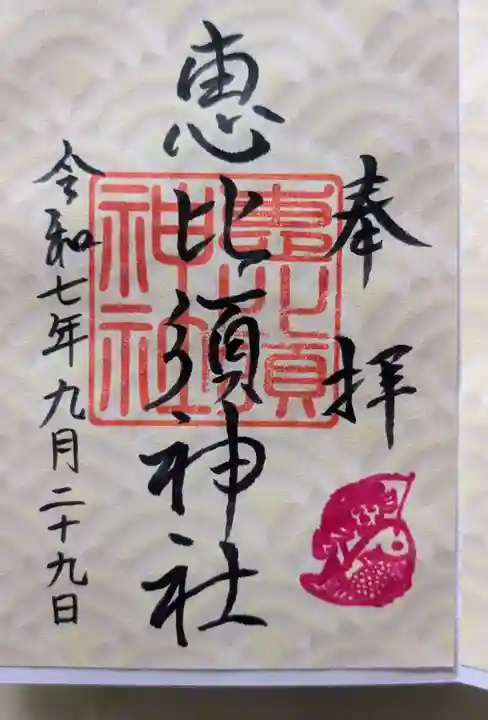 奉拝
恵比須神社
恵比須神社
令和七年九月二十九日